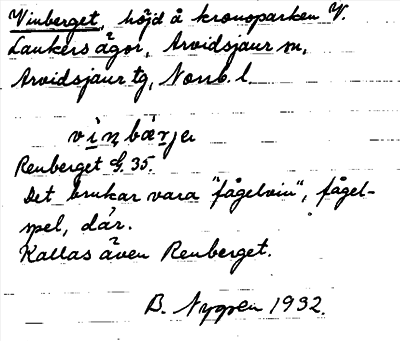 Vinberget, höjd å kronoparken V.
Lankers ägor, Arvidsjaur sn,
Arvidsjaur tg, Norrb. l.
vi̱ṇbær̲je
Renberget G. 35.
Det brukar vara "fågelvin", fågel-
spel, där.
Kallas även Renberget.
B. Nygren 1932.